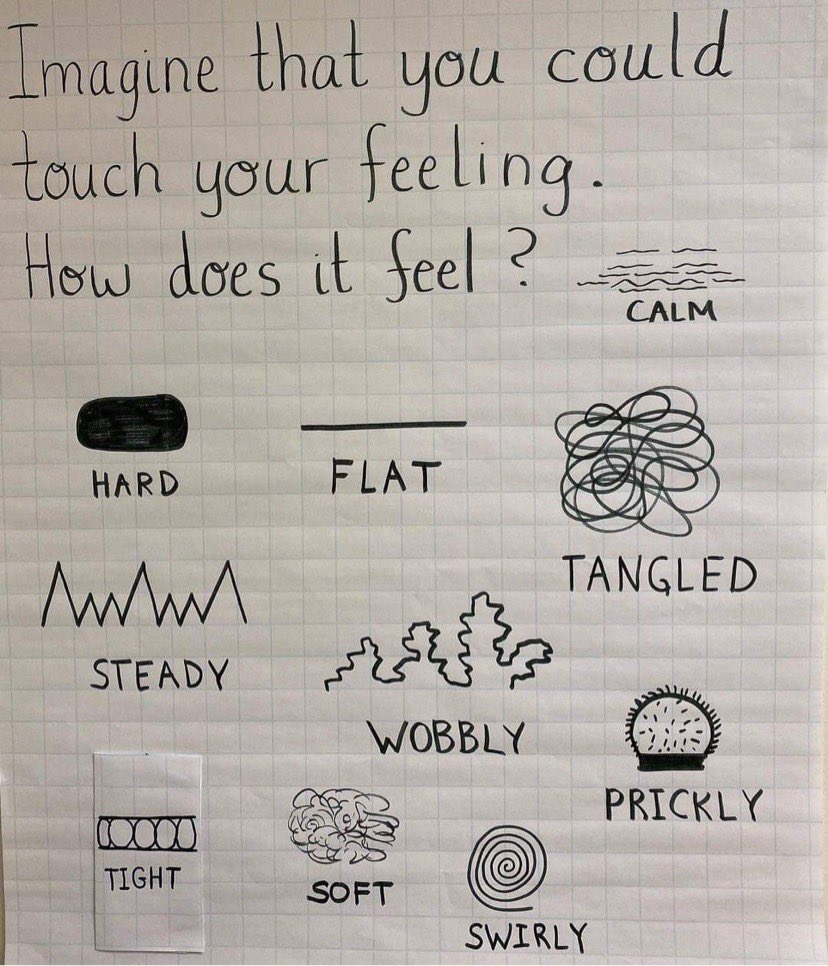 Imagine that you could
touch your feeling.
How does it feel?
CALM
HARD
FLAT
TANGLED
STEADY
WOBBLY
PRICKLY
TIGHT
SOFT
SWIRLY